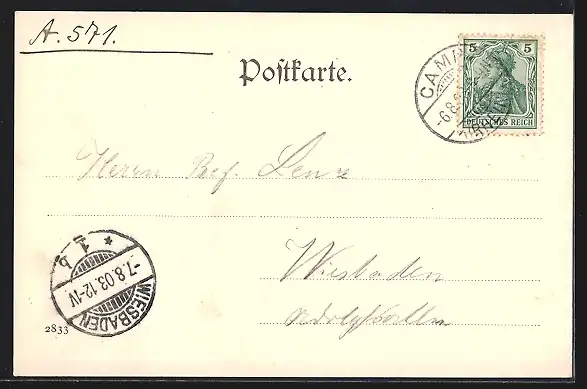 A. 571.
Postkarte.
5 5
DEUTSCHES REICH
CAM
-6.8.
Herrn Lenz
Wiesbaden
* 1 b
-7.8.03.12-1V
WIESBADEN
2833